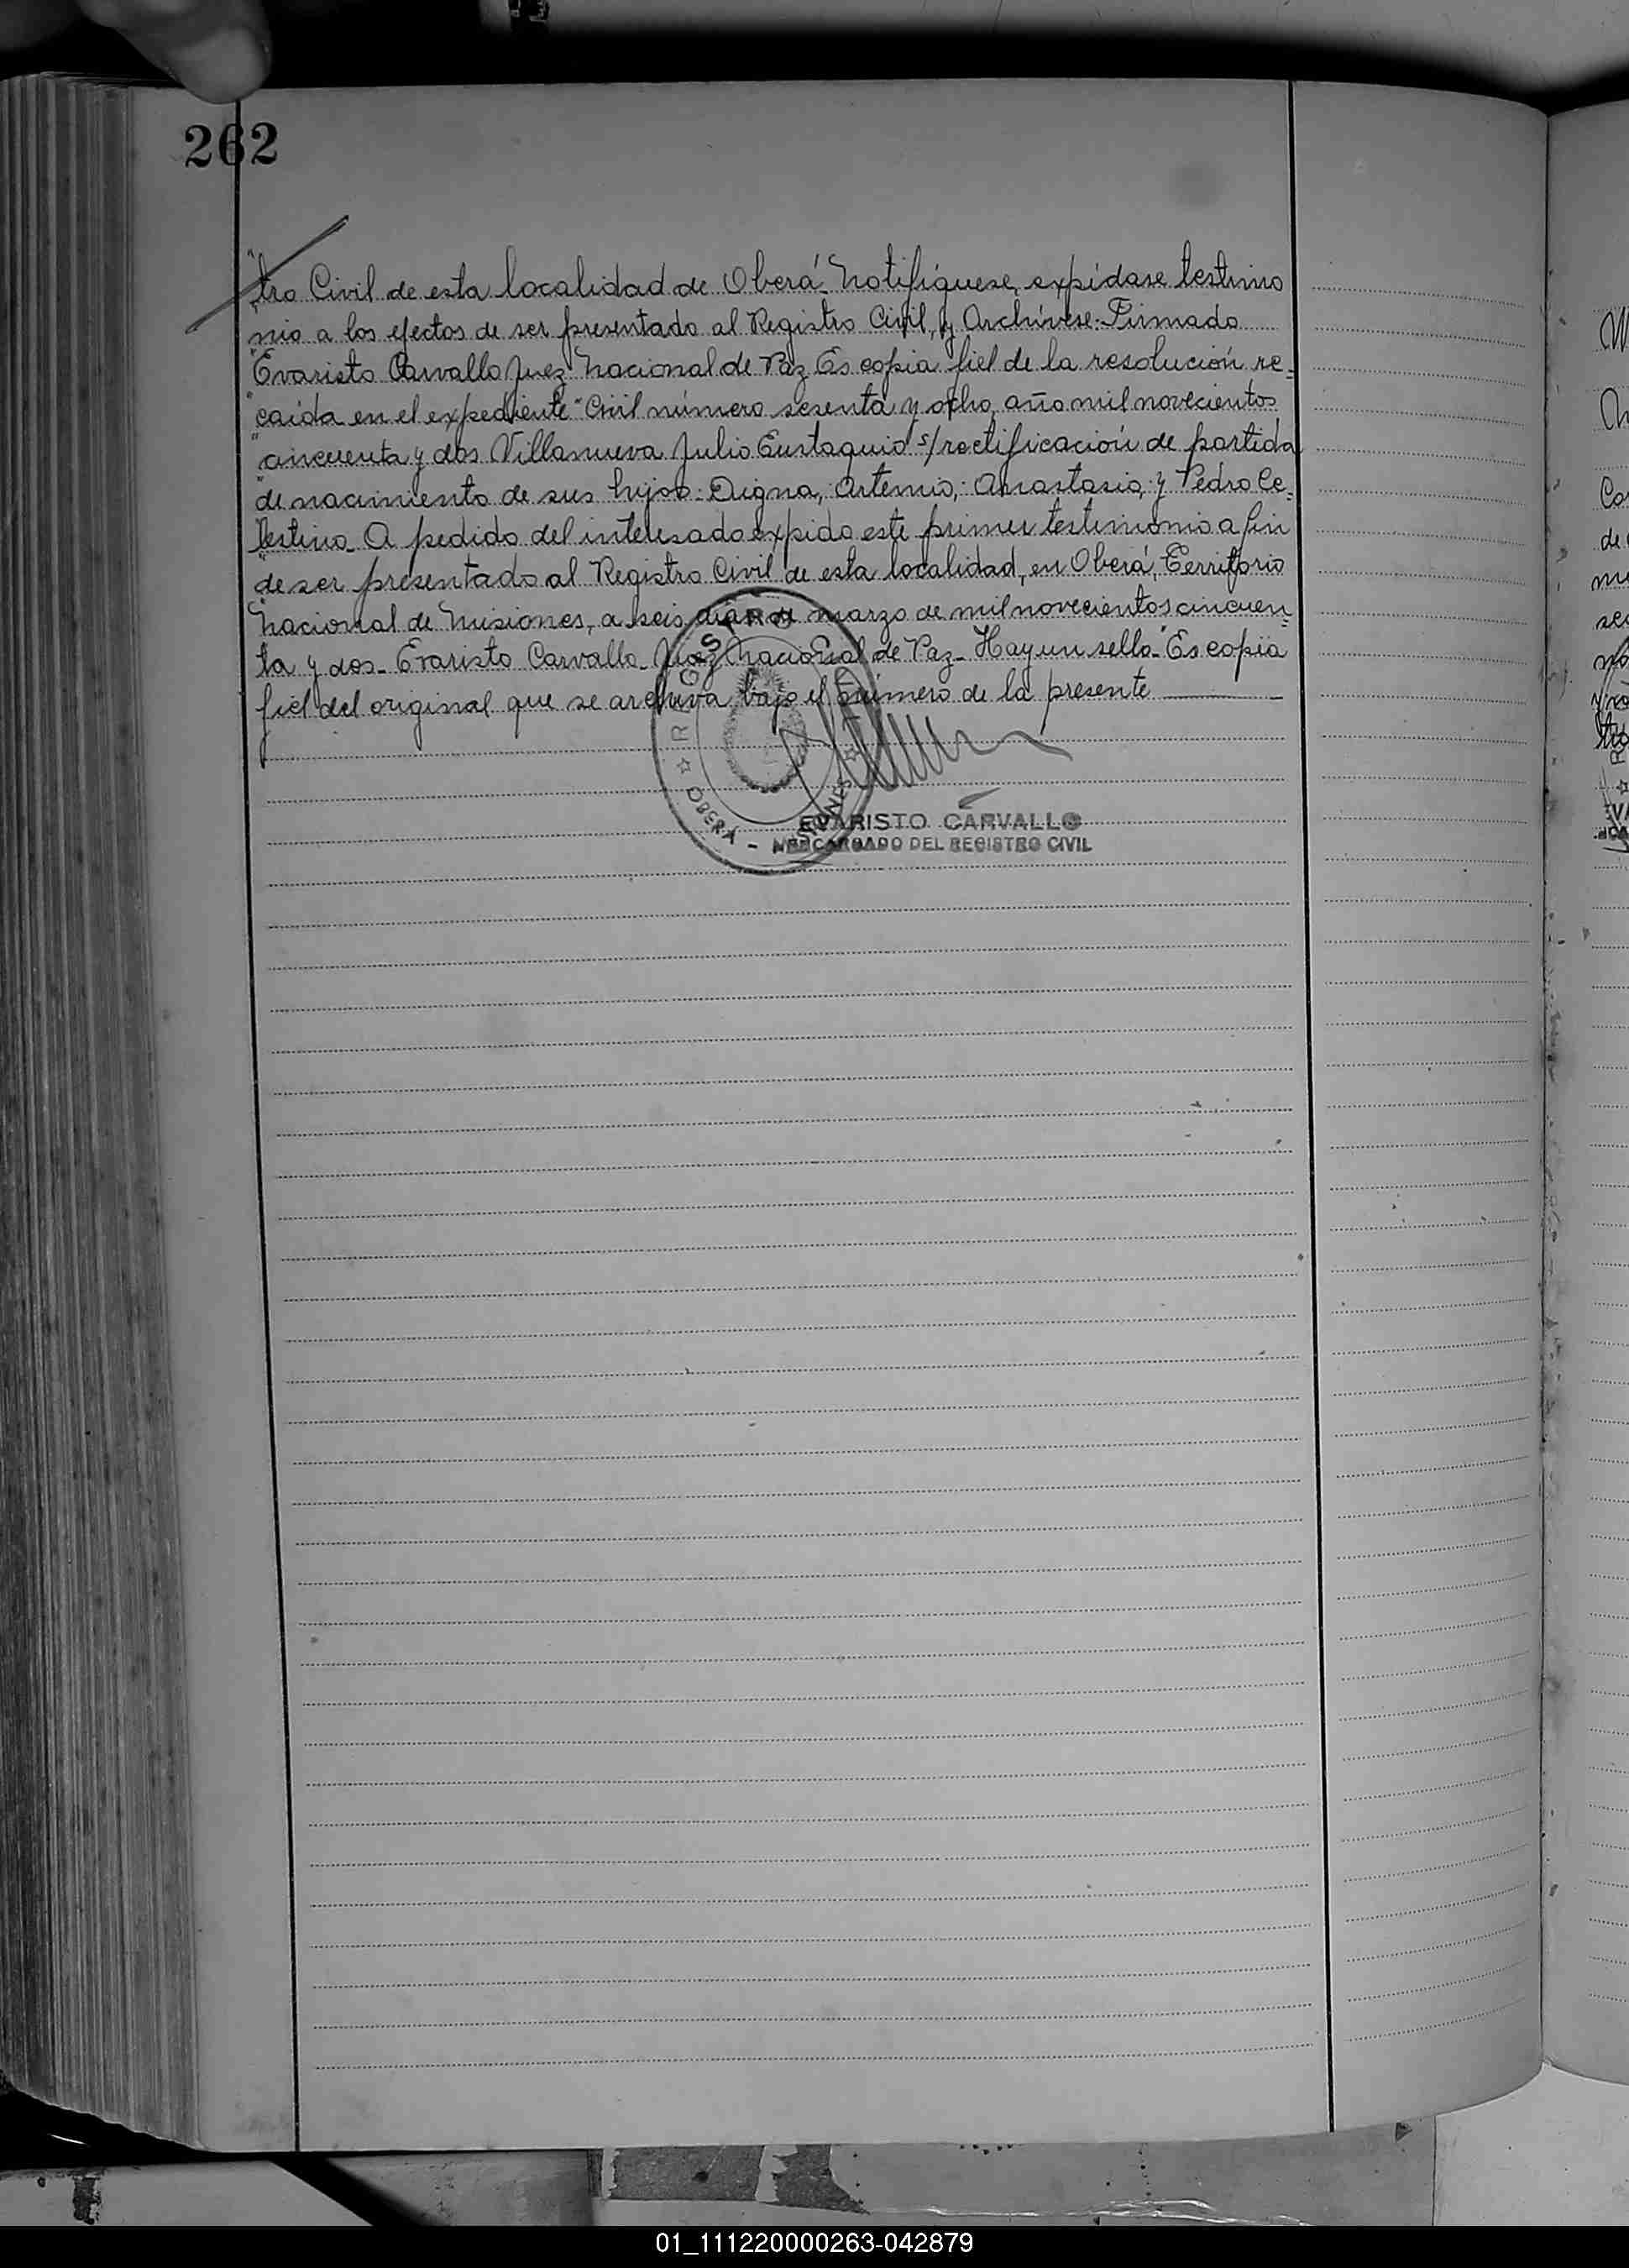 262
"tro Civil de esta localidad de Oberá. Notifíquese, expídase testimo
"nio a los efectos de ser presentado al Registro Civil, y Archívese. Firmado
"Evaristo Carvallo Juez Nacional de Paz Es copia fiel de la resolución re-
"caída en el expediente "Civil número sesenta y ocho, año mil novecientos
"cincuenta y dos Villanueva Julio Eustaquio s/rectificación de partida
"de nacimiento de sus hijos: Digna, Artemio, Anastasia, y Pedro Ce-
"lestino. A pedido del interesado expido este primer testimonio a fin
"de ser presentado al Registro Civil de esta localidad, en Oberá, Territorio
"Nacional de Misiones, a seis días de marzo de mil novecientos cincuen-
ta y dos. Evaristo Carvallo. Juez Nacional de Paz. Hay un sello". Es copia
fiel del original que se archiva bajo el número de la presente
REGISTRO
OBERÁ - MISIONES
EVARISTO CARVALLO
ENCARGADO DEL REGISTRO CIVIL
01_111220000263-042879